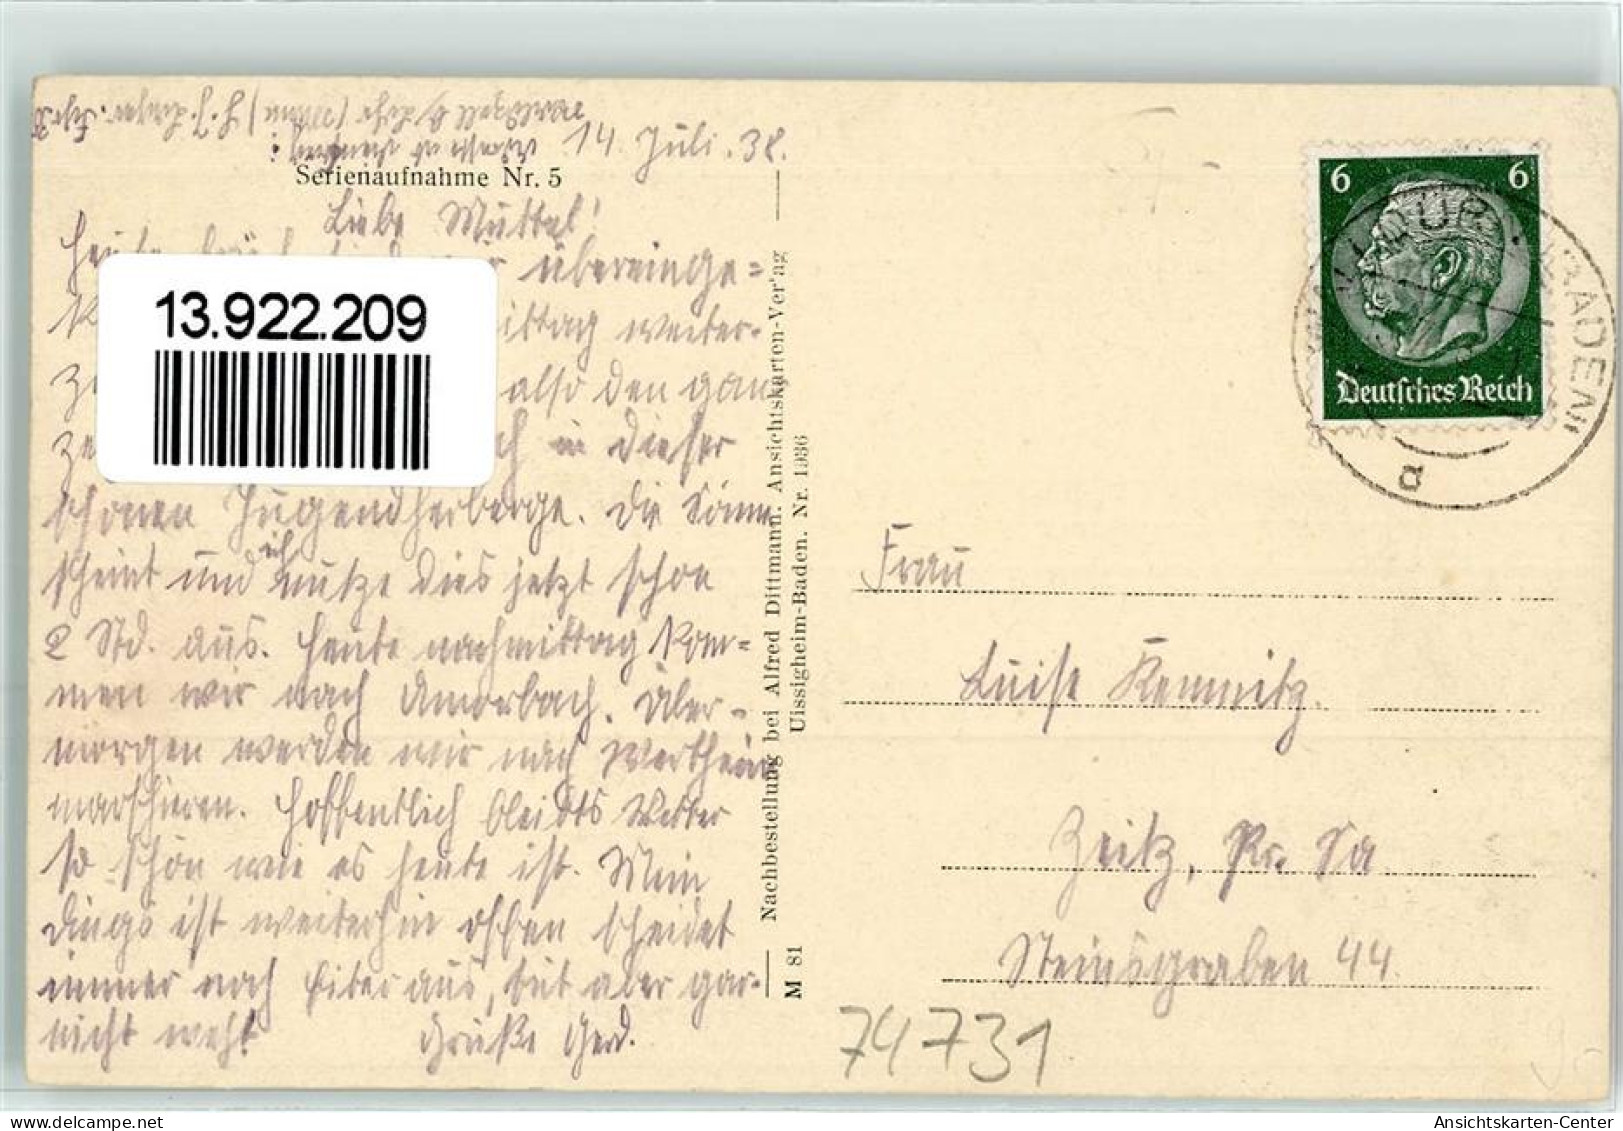 14. Juli. 38.
Serienaufnahme Nr. 5
Liebe Muttel!
Heute früh sind wir übereinge=
mittag weiter-
also den gan
in dieser
schönen Jugendherberge. Die Sonne
scheint und ich nutze dies jetzt schon
2 Std. aus. Heute nachmittag kom=
men wir nach Amorbach. Über-
morgen werden wir nach Wertheim
marschieren. Hoffentlich bleibts Wetter
so schön wie es heute ist. Mein
Dings ist weiterhin offen scheidet
immer noch Eiter aus, tut aber gar-
nicht weh! Grüße Gerd.
13.922.209
M 81 Nachbestellung bei Alfred Dittmann. Ansichtskarten-Verlag
Uissigheim-Baden. Nr. 1936
6 6
Deutsches Reich
(BADEN)
a
Frau
Luise Kemnitz.
Zeitz, Pr. Sa
Steinsgraben 44.
74731
Ansichtskarten-Center